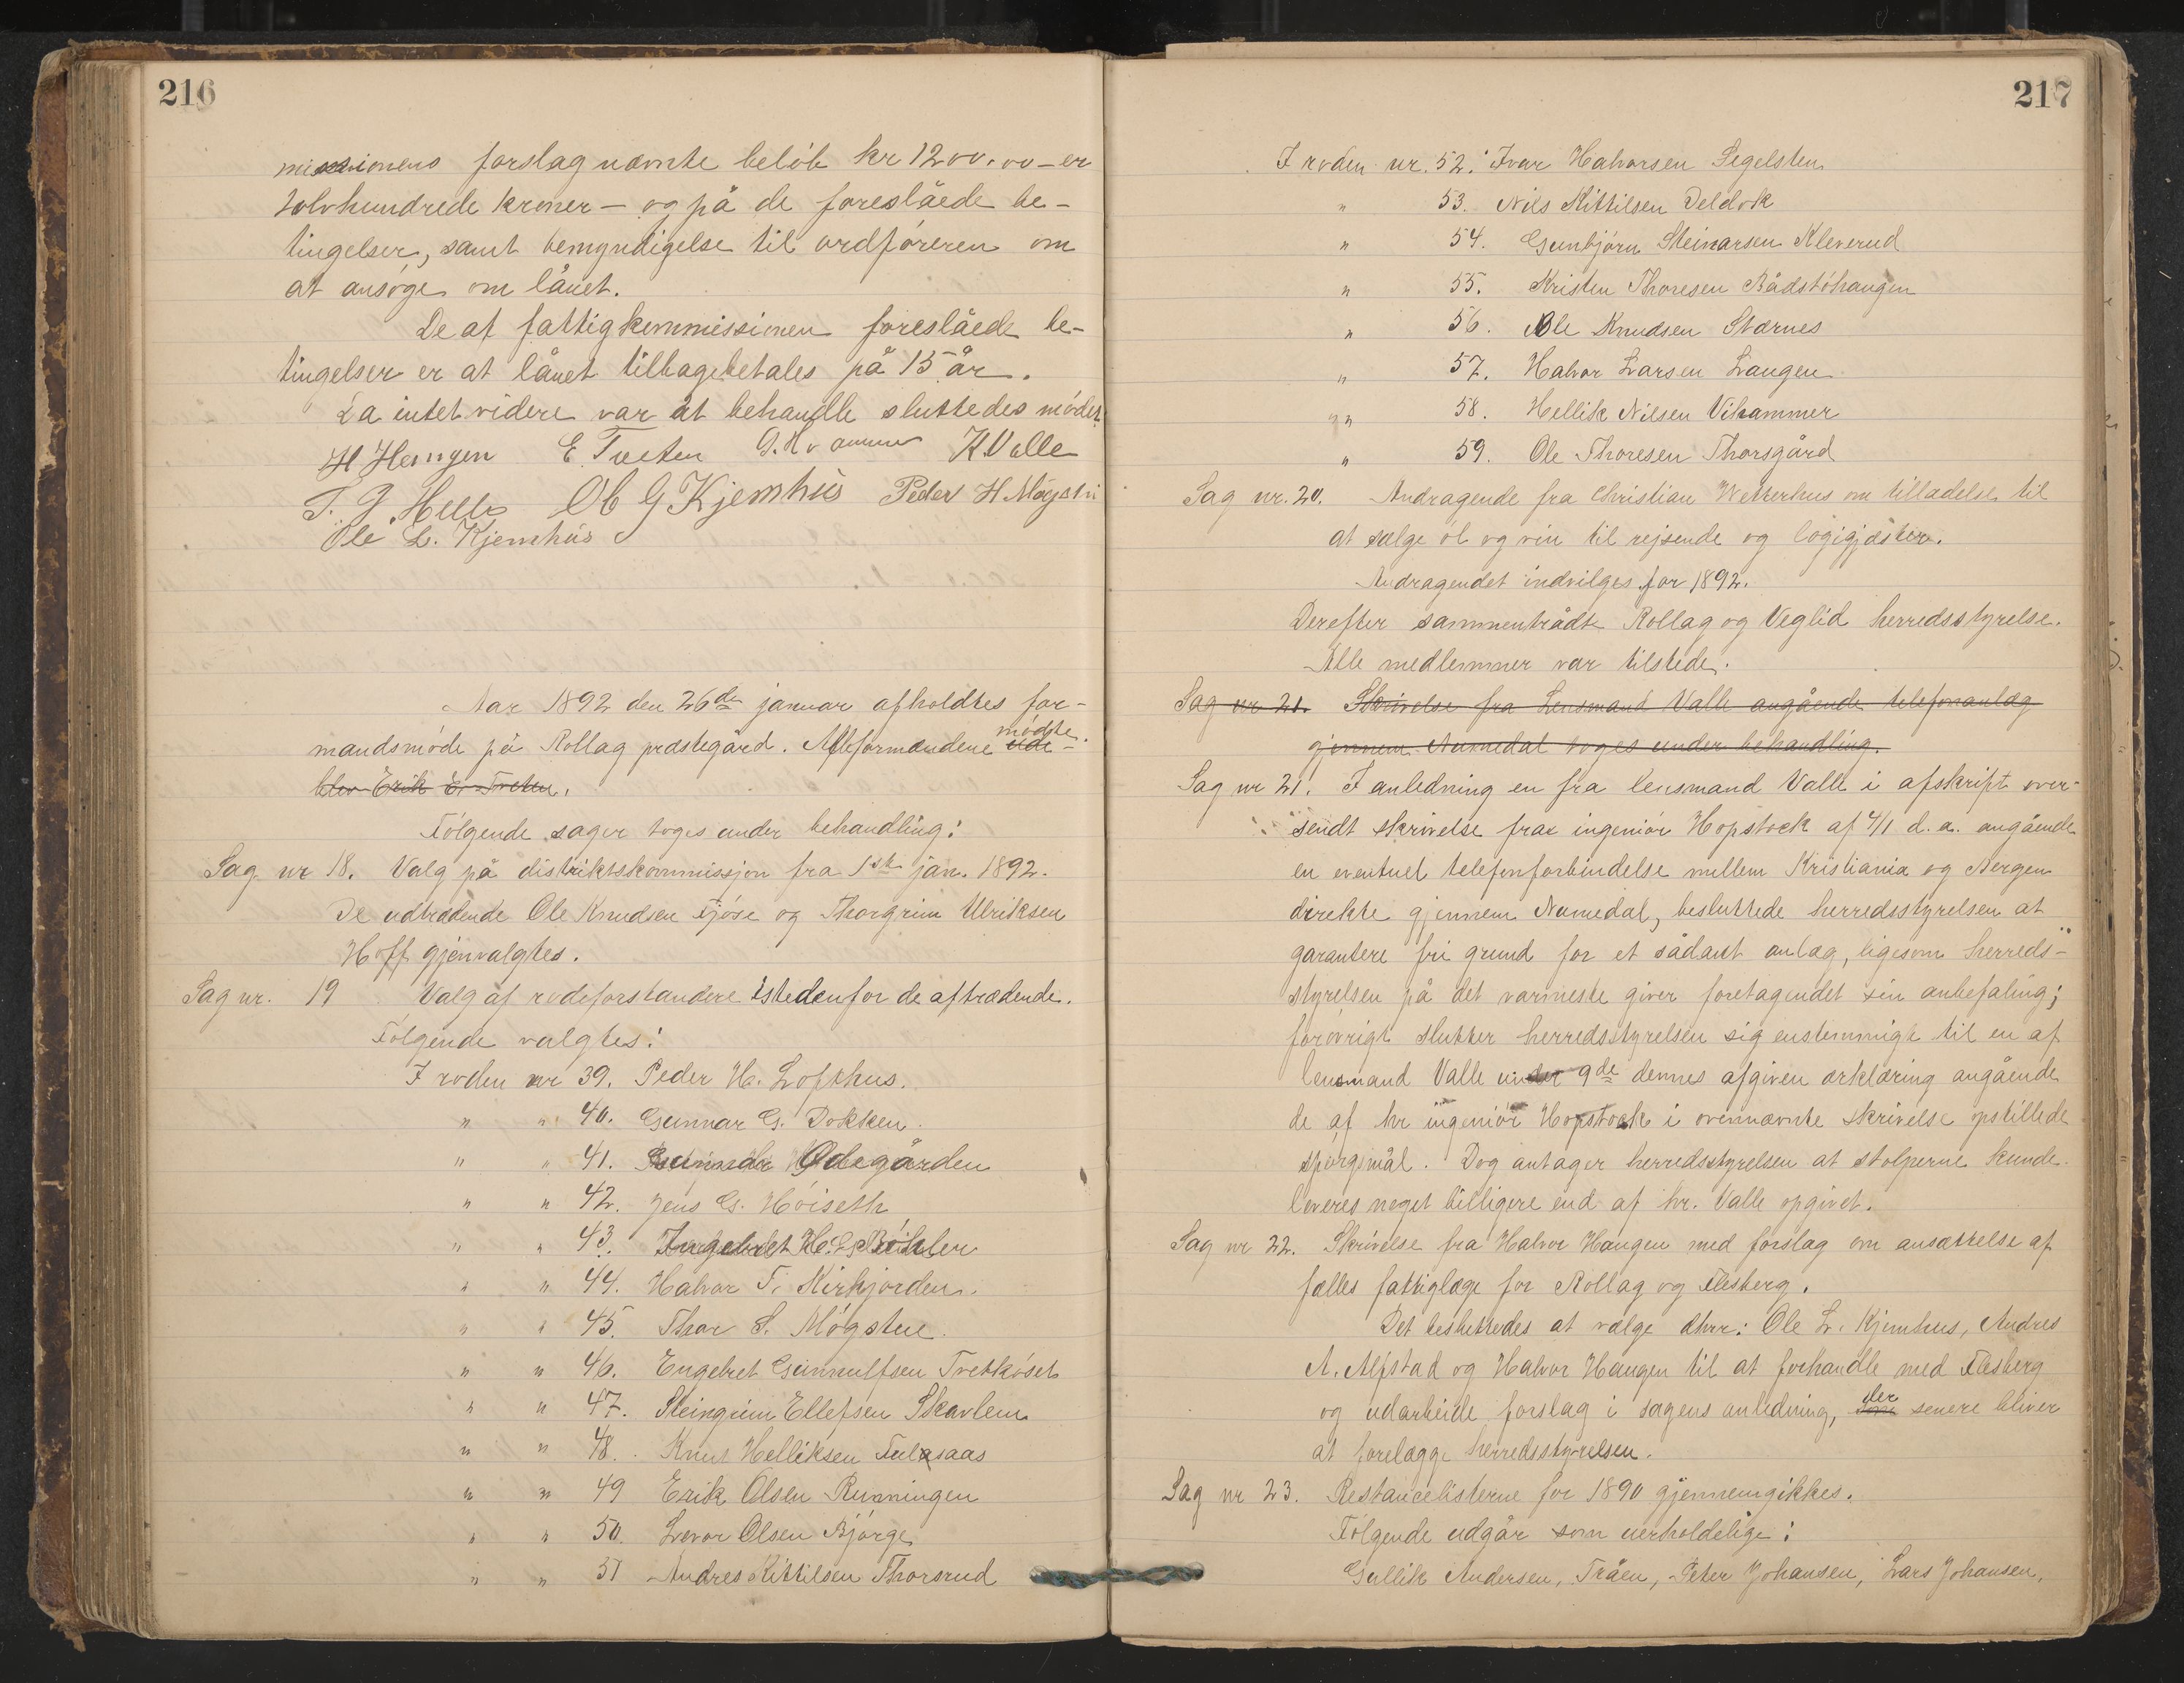 216
missionens forslag nævnte beløb kr 1200.00 – er
tolvhundrede kroner – og på de foreslåede be-
tingelser, samt bemyndigelse til ordføreren om
at ansøge om lånet.
De af fattigkommissionen foreslåede be-
tingelser er at lånet tilbagebetales på 15 år.
Da intet videre var at behandle sluttedes mödet
H Haugen E Tveten G. Hvammen K Valle
T. G. Helle Ole G Kjemhus Peder H Møgstu
Ole L. Kjemhus
Aar 1892 den 26de januar afholdtes for-
mandsmöde på Rollag præstegård. Alle formændene ude- mödte.
blev Erik E. Tveten.
Fölgende sager toges under behandling:
Sag nr 18. Valg på distriktskommissjon fra 1ste jan. 1892.
De udtrædende Ole Knudsen Fjöse og Thorgrim Ulriksen
Hoff gjenvalgtes.
Sag nr. 19 Valg af rodeforstandere istedenfor de aftrædende.
Fölgende valgtes:
I roden nr 39. Peder H. Lofthus.
" " 40. Gunnar G. Dokken.
" " 41. Gunnar Ødegården
" " 42. Jens G. Höiseth
" " 43. Ingebret H.
" " 44. Halvor T. Kirkjorden.
" " 45. Thor S. Mögstue.
" " 46. Engebret Gunnulfsen Trettöset
" " 47. Steingrim Ellefsen Skavlem
" " 48. Knut Helliksen Fulsaas
" " 49 Erik Olsen Runningen
" " 50. Levor Olsen Björge
" " 51 Andres Kittilsen Thorsrud
217
I roden nr. 52. Ivar Halvorsen Segelsten
" 53. Nils Kittilsen Deldok
" 54. Gunbjörn Steinarsen Kleverud
" 55. Kristen Thoresen Bådstöhaugen
" 56. Ole Knudsen Stærnes
" 57. Halvor Larsen Langen
" 58. Hellik Nilsen Vihammer
" 59. Ole Thoresen Thorsgård
Sag nr. 20. Andragende fra Christian Wetterhus om tilladelse til
at sælge öl og vin til rejsende og logigjæster.
Andragendet indvilges for 1892.
Derefter sammentrådte Rollag og Veglid herredsstyrelse.
Alle medlemmer var tilstede.
Sag nr 21. Skrivelse fra Lensmand Valle angående telefonanlæg
gjennem Numedal toges under behandling.
Sag nr 21. I anledning en fra lensmand Valle i afskrift over-
sendt skrivelse fra ingeniör Hopstock af 4/1 d.a. angående
en eventuel telefonforbindelse mellem Kristiania og Bergen
direkte gjennem Numedal, besluttede herredsstyrelsen at
garantere fri grund for et sådant anlæg, ligesom herreds-
styrelsen på det varmeste giver foretagendet sin anbefaling;
forövrigt slutter herredsstyrelsen sig enstemmigt til en af
lensmand Valle under 9de dennes afgiven erklæring angående
de af hr ingeniör Hopstock i ovennævnte skrivelse opstillede
spörgsmål. Dog antager herredsstyrelsen at stolperne kunde
leveres noget billigere end af hr. Valle opgivet.
Sag nr 22. Skrivelse fra Halvor Haugen med forslag om ansættelse af
fælles fattiglæge for Rollag og Flesberg.
Det besluttedes at vælge dhrr: Ole L. Kjemhus, Andres
A. Alfstad og Halvor Haugen til at forhandle med Flesberg
og udarbeide forslag i sagens anledning, som der senere bliver
at forelægge herredsstyrelsen.
Sag nr 23. Restancelisterne for 1890 gjennemgikkes.
Fölgende udgår som uerholdelige:
Gullik Andersen, Tråen, Peter Johansen, Lars Johansen,